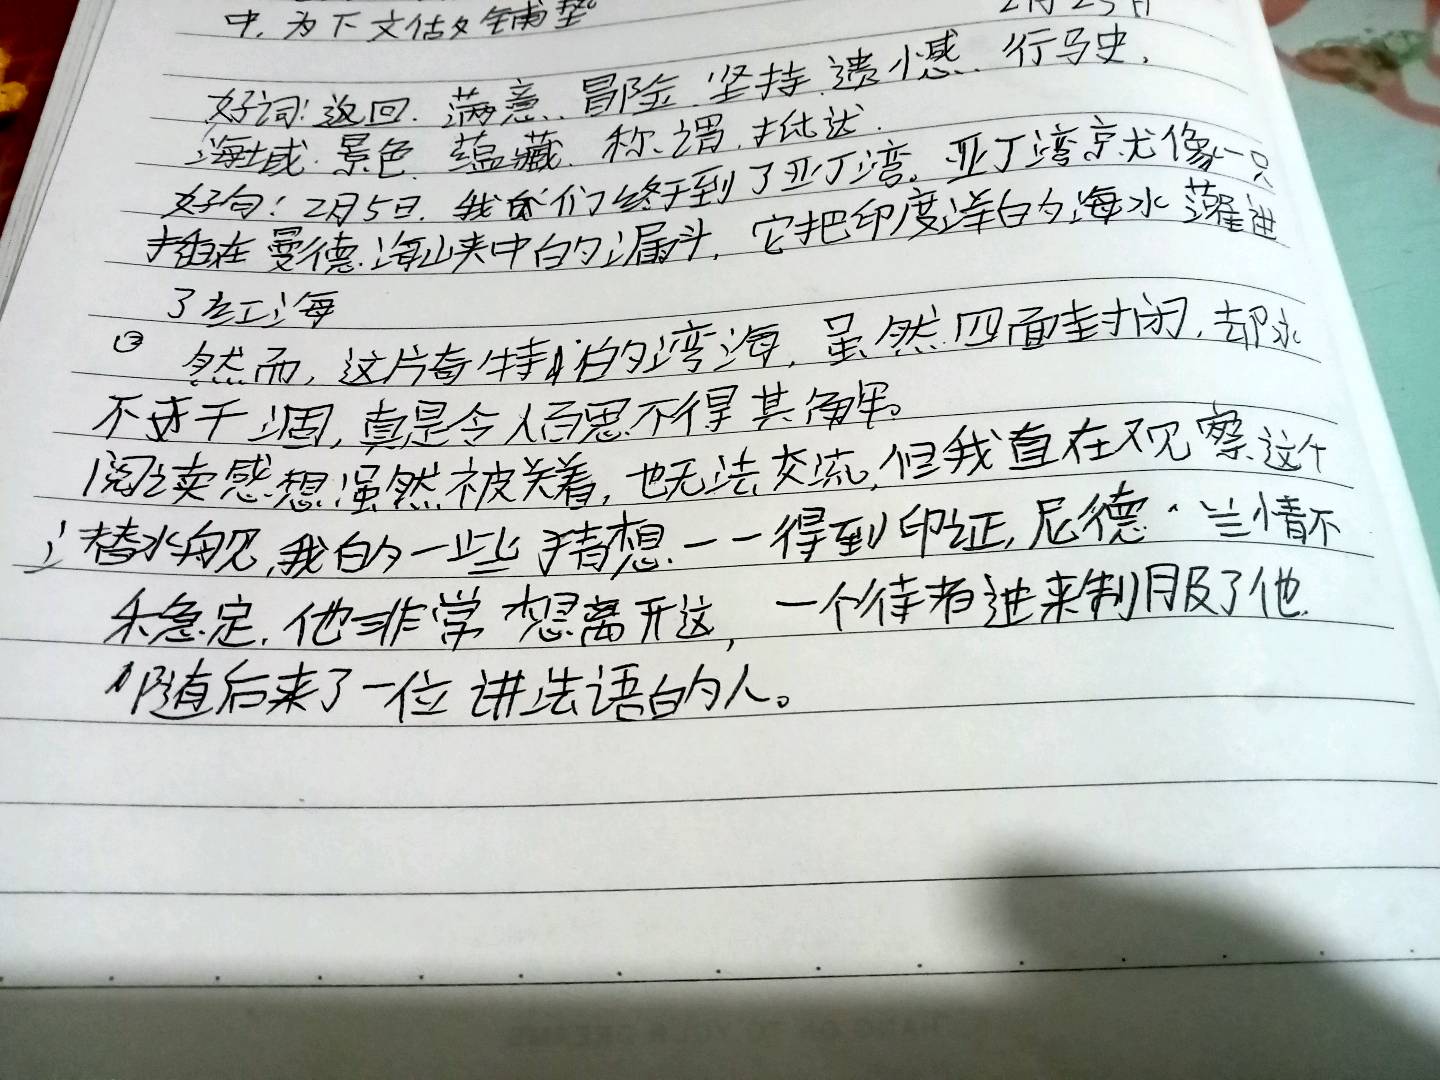 中，为下文估夕铺垫。
2月25日
好词：返回、满意、冒险、坚持、遗憾、行驶，
海域、景色、蕴藏、称谓、抵达．
好句：2月5日，我们终于到了亚丁湾。亚丁湾京尤像一只
插在曼德海峡中的漏斗，它把印度洋的海水灌进
了红海
② 然而，这片奇特的湾海，虽然四面封闭，却永
不干涸，真是令人百思不得其解。
阅读感想虽然被关着，也无法交流，但我直在观察这个
潜水舰，我的一些猜想一一得到印证，尼德·兰情不
急定，他非常想离开这，一个侍者进来制服了他，
随后来了一位讲法语的人。